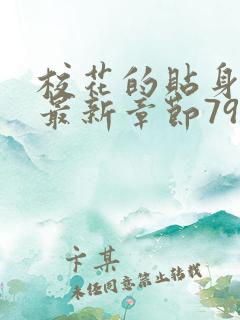 校花的貼身
最新章節79
卞某
未经同意禁止转载